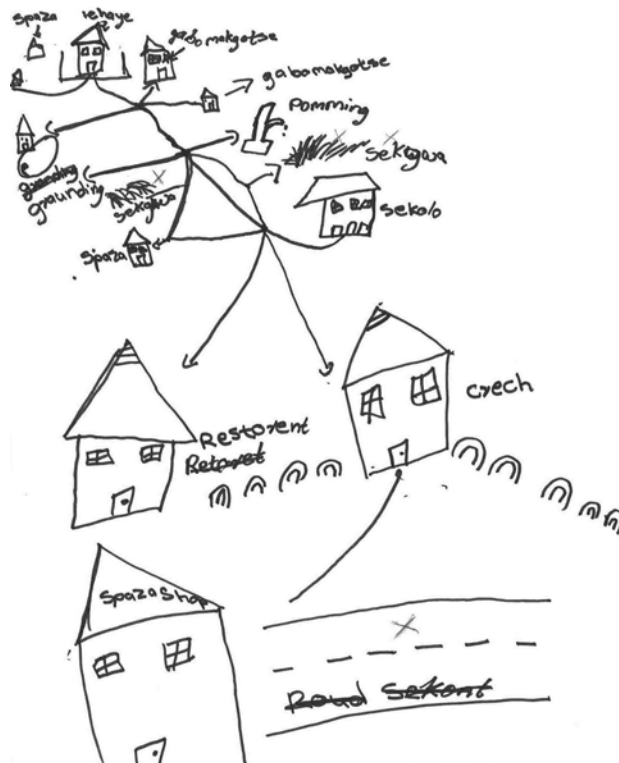 spaza
lehaye
gabo makgotse
gabomakgotse
Pomming
sekgwa
grounding
grounding
sekgwa
sekolo
spaza
crech
Restorent
Retoret
Spaza Shop
Road Sekont